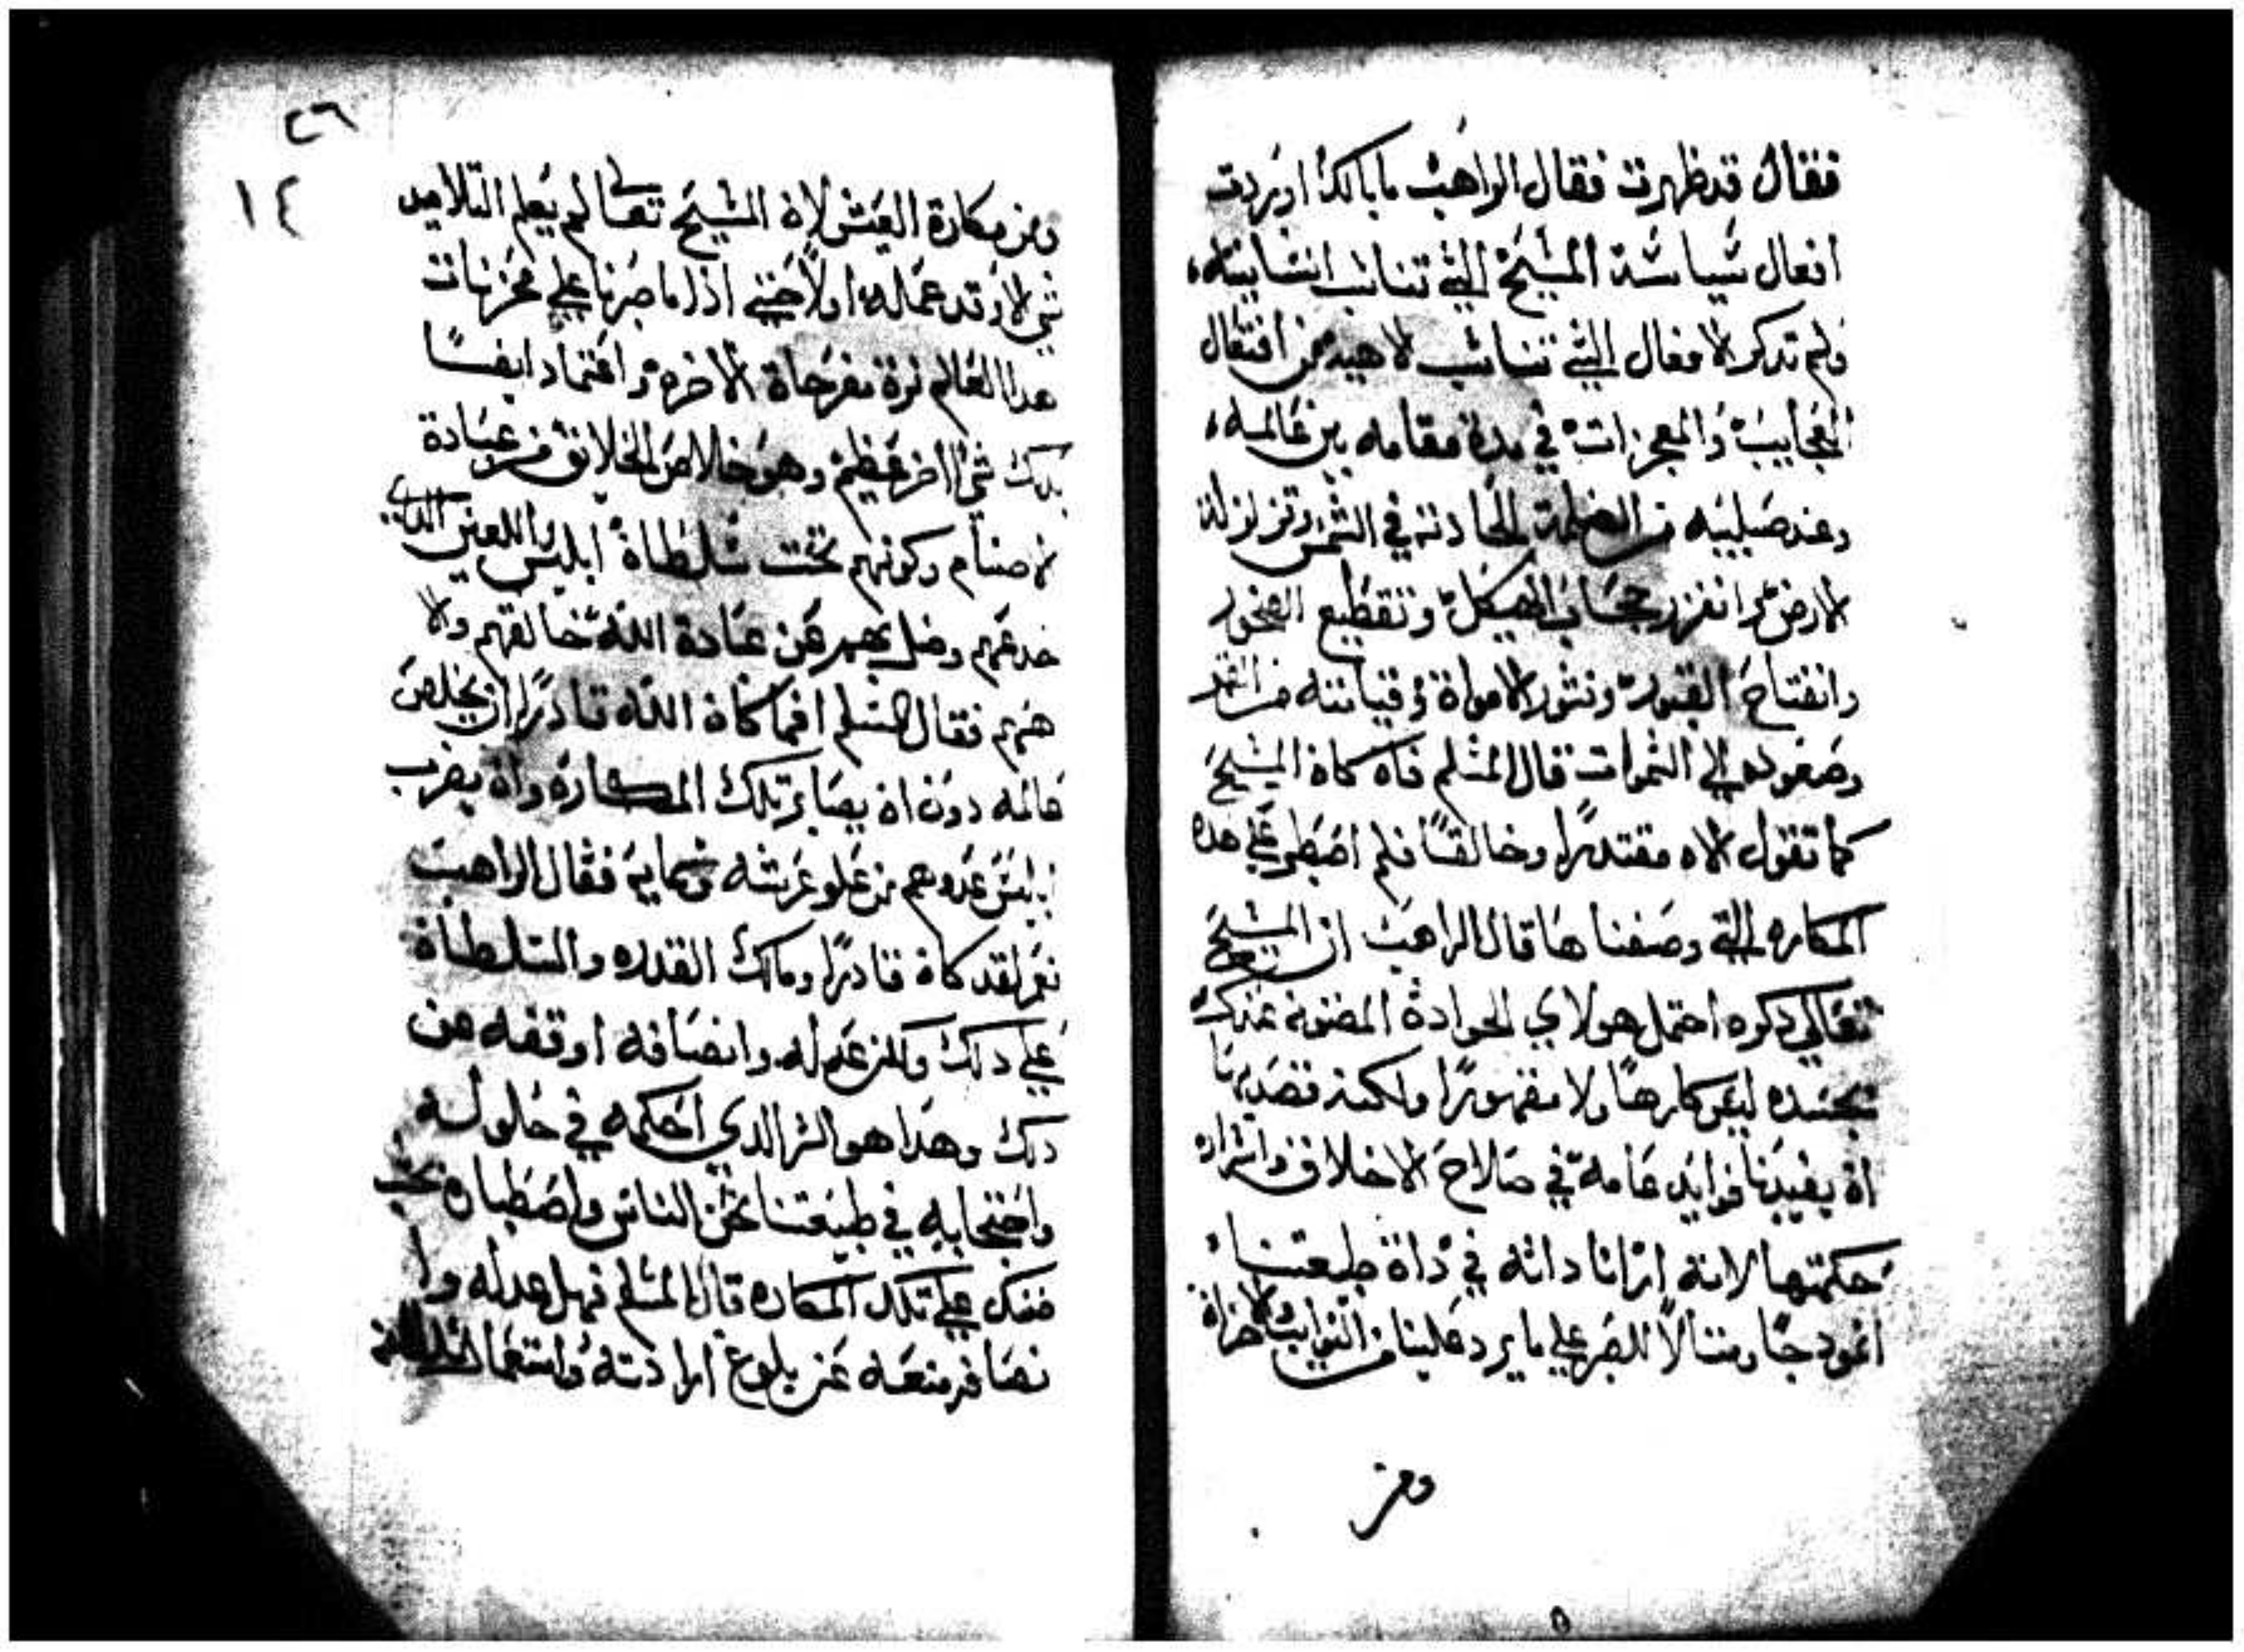 فقال قد ظهرت فقال الراهب ما بالك اوردت
افعال سياسة المسيح التي تناسب انسانيته
ولم تدكر الافعال التي تناسب لاهيته من افتعال
العجايب والمعجزات في مدة مقامه بين عالمه
وعند صلبيه من الضلمة الحادته في الشمس وتزلزلة
الارض وانفزر حجاب الهيكل وتقطيع الصخور
وانفتاح القبور ونشور الامواة وقيامته من القبر
وصعوده الي السموات قال المسلم فان كان المسيح
كما تقول الاه مقتدرا وخالقا فلم اصطبر علي هده
المكاره التي وصفناها قال الراهب ان المسيح
تعالي دكره احتمل هولاي الحوادة المضنونه عندك
بجسده ليس كارها ولا مقهورا ولكنه قصد بها
ان يفيدنا فوايد عامة في صلاح الاخلاق واسراره
حكمتها لانه ارانا داته في داة طبيعتنا
انمودجا ومتالا للصبر علي ما يرد علينا من النوايب والاحزان
ومن
٢٦
١٤
ومن مكارة العيش لان المسيح تعالي لم يعلم التلاميد
شي الا وقد عمله اولا حتي ادا ما صبرنا علي محزنات
هدا العالم نرة مفرحاة الاخره وافتماد ايضا
بدلك شيا اخر عظيم وهو خلاص الخلايق من عبادة
الاصنام وكونهم تحت سلطان ابليس اللعين الدي
خدعهم وضل بهم عن عبادة الله خالقهم والا
ههم فقال المسلم افما كان الله قادرا ان يخلص
عالمه دون ان يصابر تلك المكاره وان يضرب
ابليس عدوهم من علو عرشه وسمايه فقال الراهب
نعم لقد كان قادرا ومالك القدره والسلطان
علي دلك ولكن عدله وانصافه اوقفه عن
دلك وهدا هو السر الدي احكمه في حلوله
واحتجابه في طبيعتنا نحن الناس واصطباره بحسب
علي تلك المكاره قال المسلم فهل عدله وا
نصافه منعه عن بلوغ ارادته واستعمال